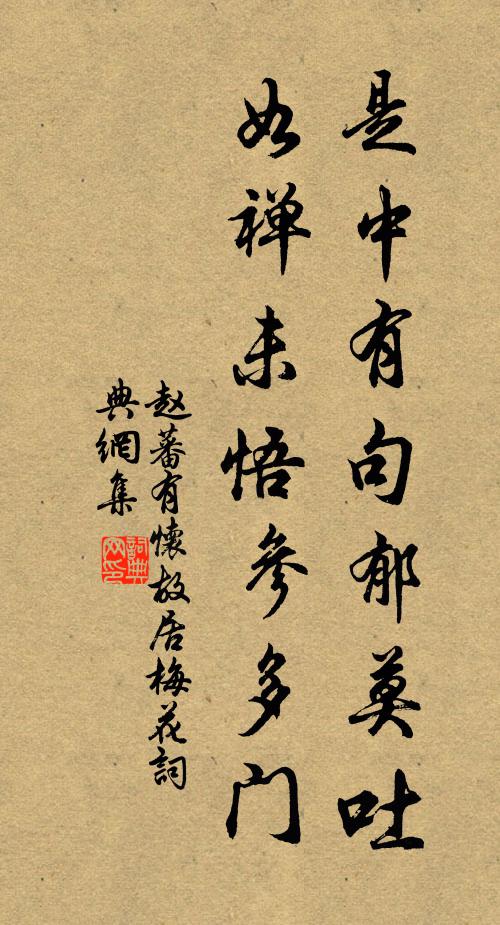 是中有句郁莫吐
如禅未悟参多门
赵蕃有懷故居梅花詞
典網集
詞典
网印